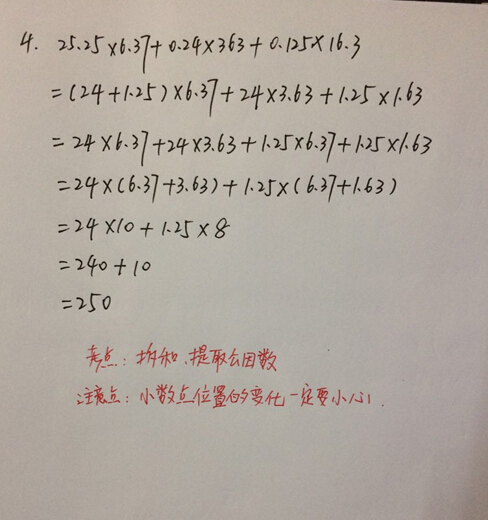 4. 25.25×6.37+0.24×363+0.125×16.3
=(24+1.25)×6.37+24×3.63+1.25×1.63
=24×6.37+24×3.63+1.25×6.37+1.25×1.63
=24×(6.37+3.63)+1.25×(6.37+1.63)
=24×10+1.25×8
=240+10
=250
考点：拆和、提取公因数
注意点：小数点位置的变化一定要小心！